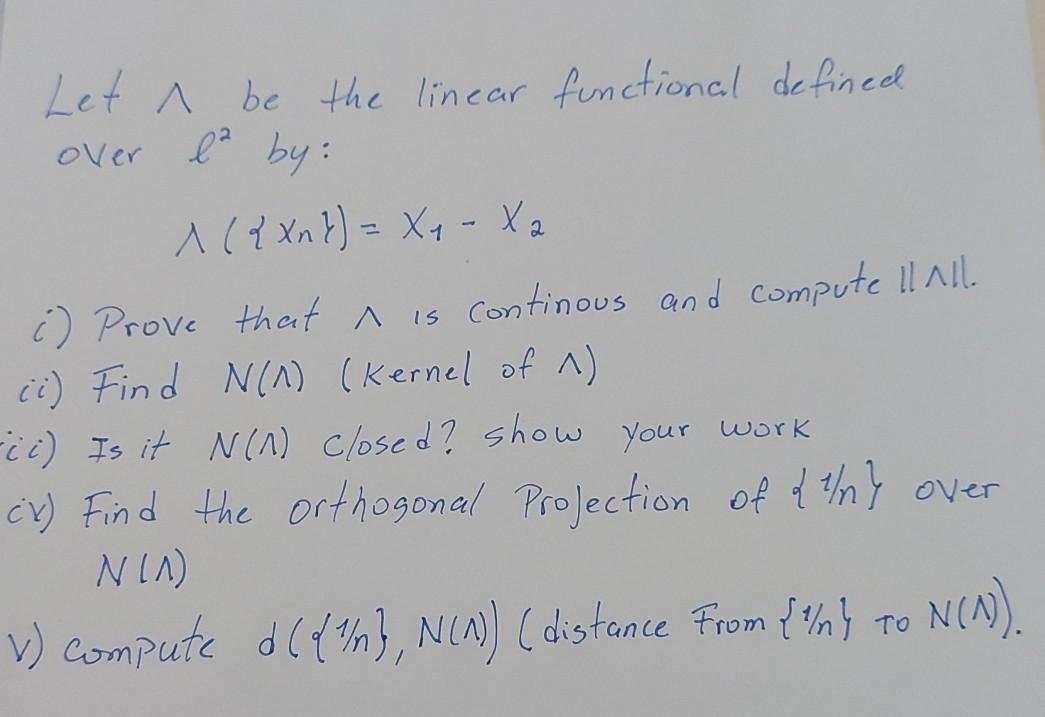 Let Λ be the linear functional defined
over ℓ² by:
Λ({xn}) = X1 - X2
i) Prove that Λ is continous and compute ||Λ||.
ii) Find N(Λ) (Kernel of Λ)
iii) Is it N(Λ) closed? show your work
iv) Find the orthogonal Projection of {1/n} over
N(Λ)
v) compute d({1/n}, N(Λ)) (distance From {1/n} TO N(Λ)).